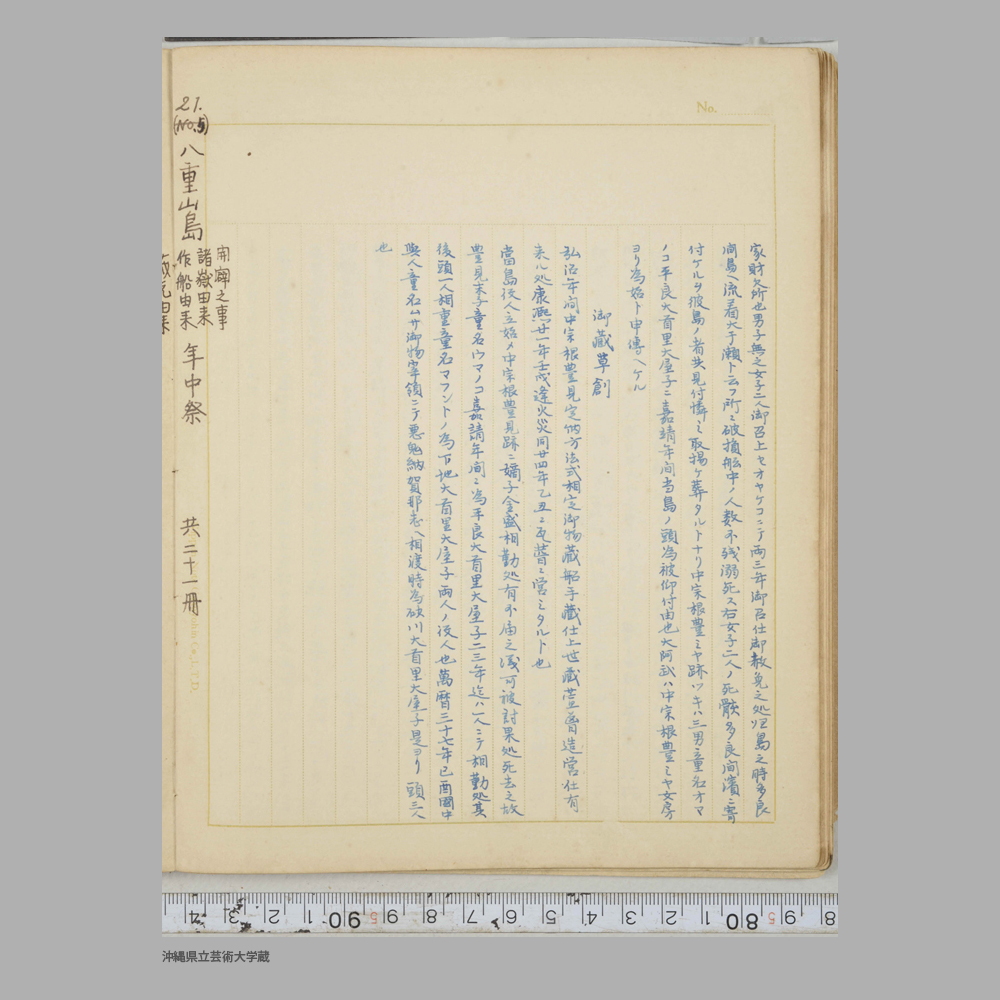 No.
家財欠所也男子無之女子二人御召上セオヤケコニテ両三年御召仕御赦免之処归島之時多良
間島ヘ流着大干瀬ト云フ所ニ破損船中ノ人数不残溺死ス右女子二人ノ死骸多良間濱ニ寄
付ケルヲ彼島ノ者共見付憐ミ取揚ケ葬タルトナリ中宗根豊ミヤ跡ツキハ三男童名オマ
ノコ平良大首里大屋子ニ嘉靖年間当島ノ頭為被仰付由也大阿武ハ中宗根豊ミヤ女房
ヨリ為始ト申傳ヘケル
御蔵草創
弘治年間中宗根豊見定納方法式相定御物蔵船手蔵仕上世蔵茅葺造営仕有
来ル処康熙廿一年壬戌逢火災同廿四年乙丑ニ瓦葺ニ営ミタルト也
當島役人立始メ中宗根豊見跡ニ嫡子金盛相勤処有不届之儀可被討果処死去之故
豊見末子童名ウマノコ嘉靖年間ニ為平良大首里大屋子二三年迄ハ一人ニテ相勤処其
後頭一人相重童名マフントノ為下地大首里大屋子両人ノ役人也萬暦三十七年己酉國中
與人童名ムサ御物宰領ニテ悪鬼納賀那志ヘ相渡時為砂川大首里大屋子是ヨリ頭三人
也
21.
(No.5)
八重山島
開闢之事
諸嶽由来
作船由来
年中祭
共二十一冊
沖縄県立芸術大学蔵